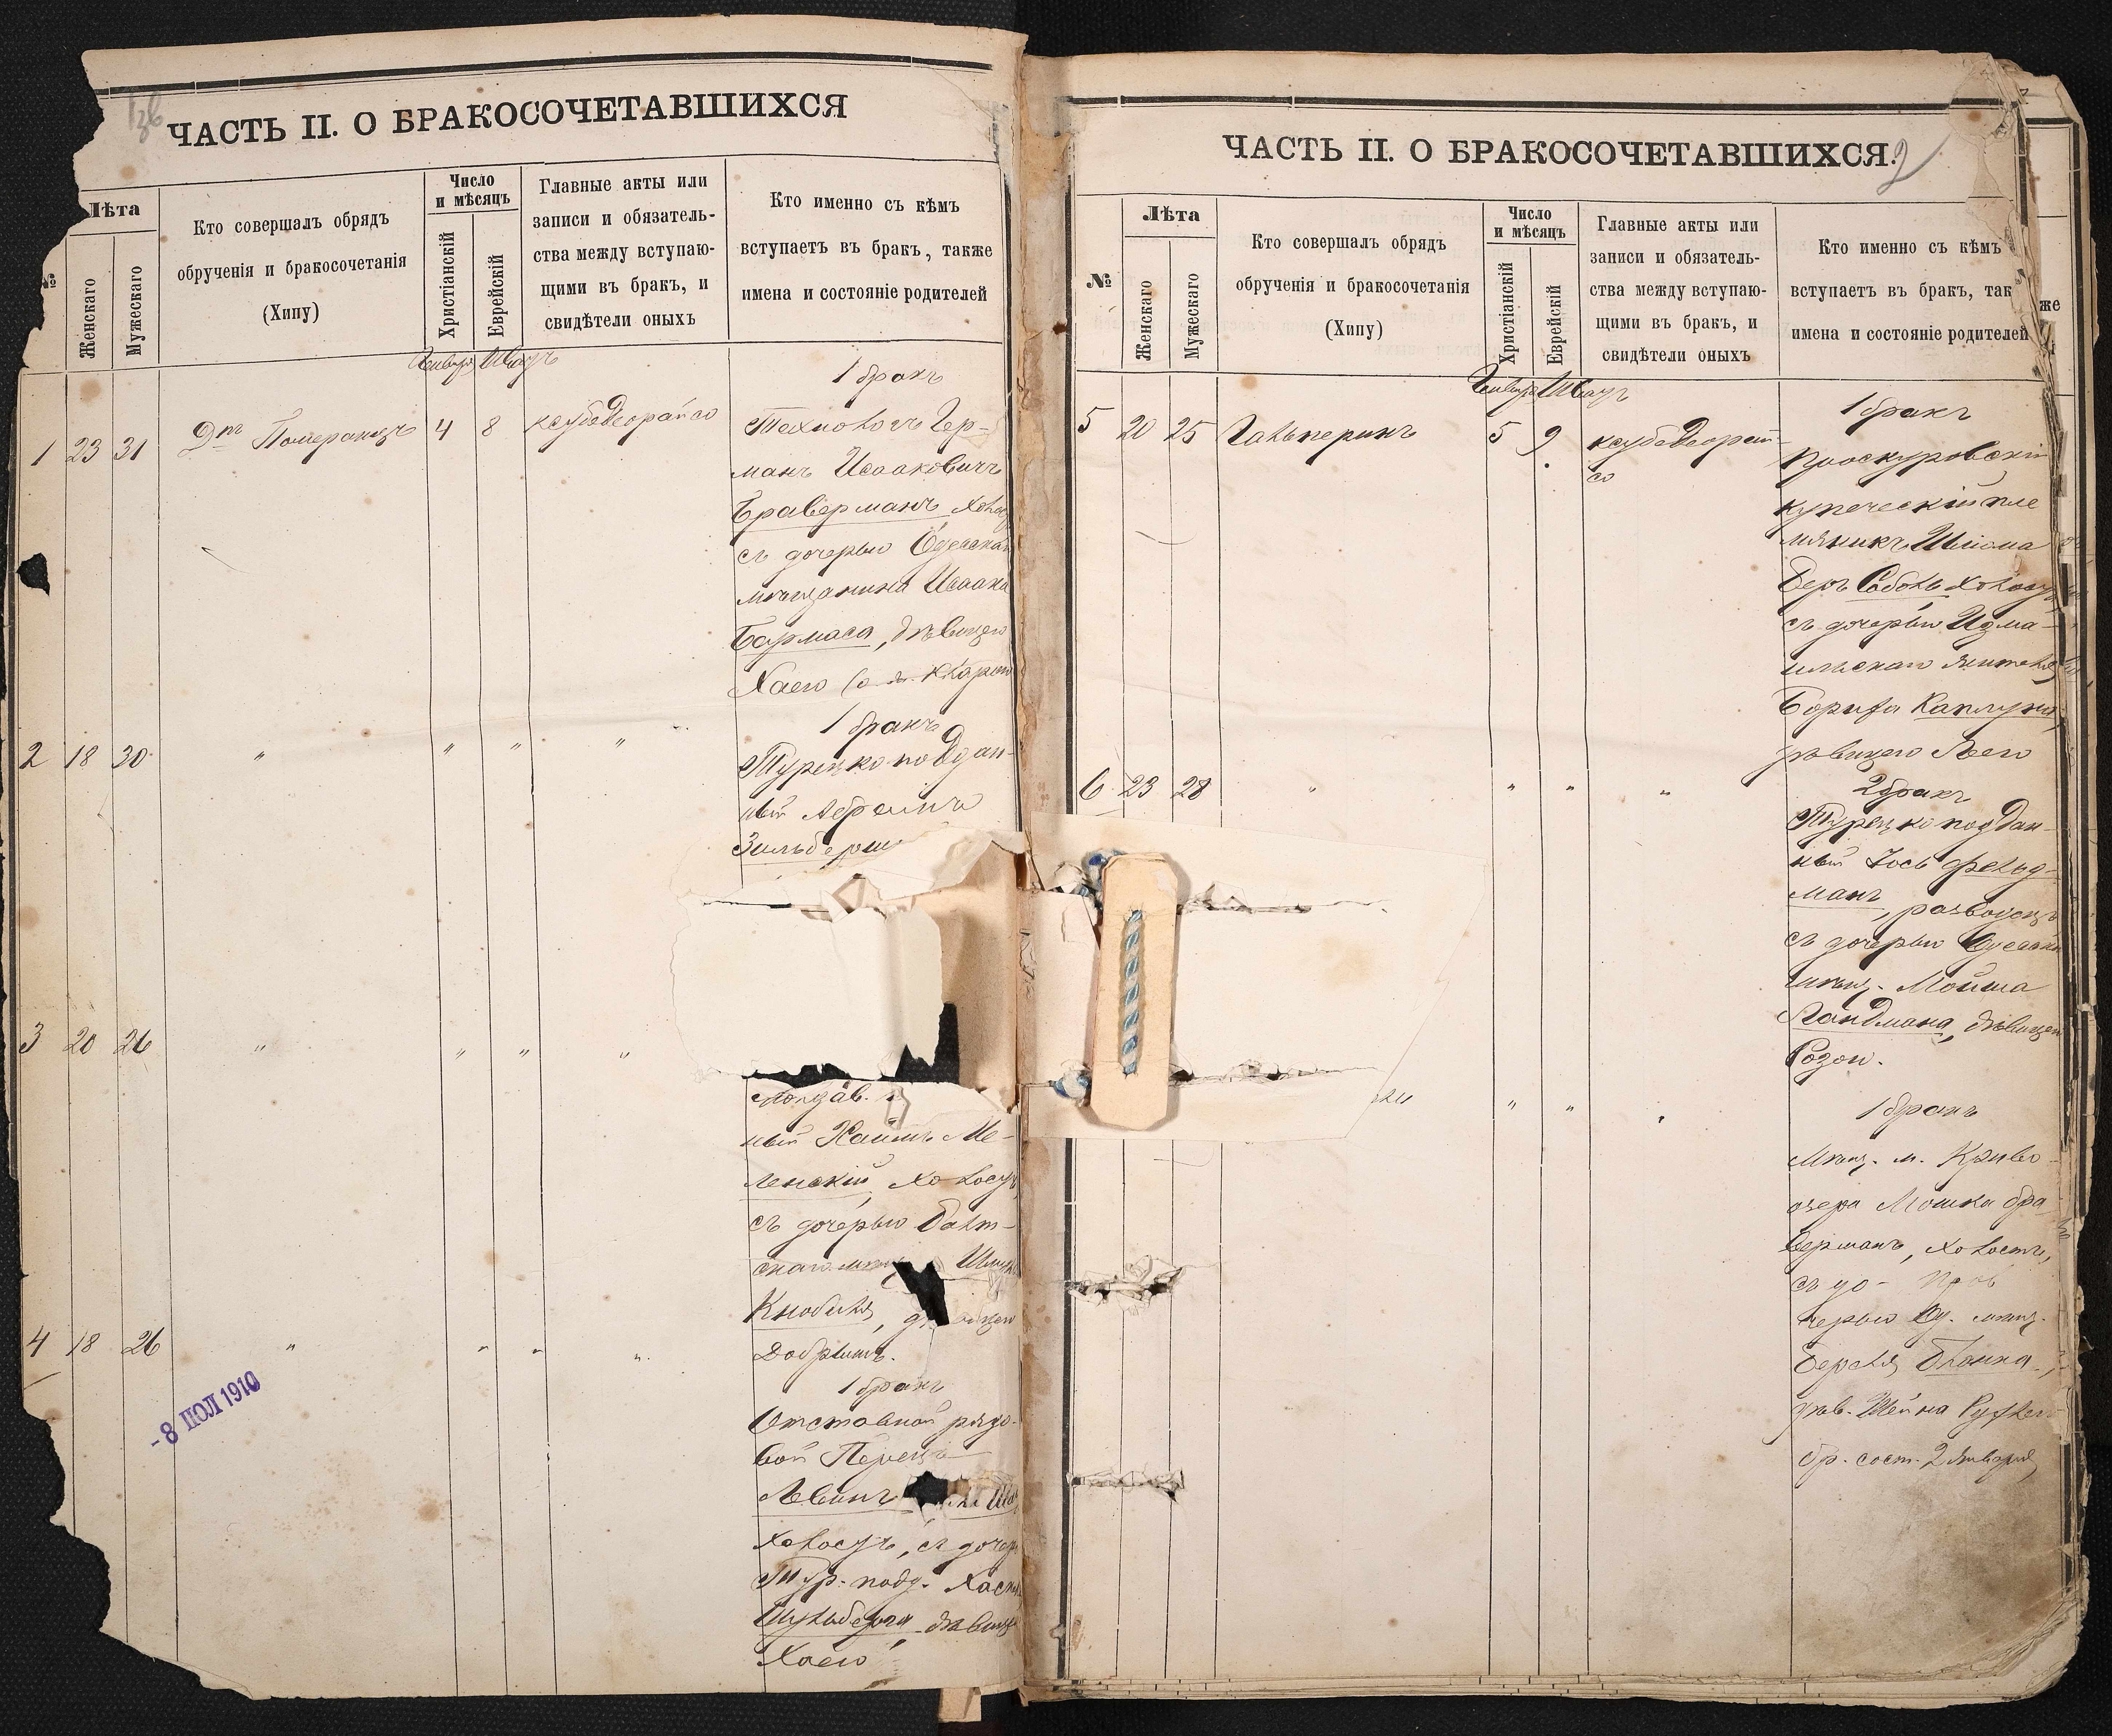 ЧАСТЬ II. О БРАКОСОЧЕТАВШИХСЯ
№
Лѣта
Женскаго
Мужескаго
Кто совершалъ обрядъ
обрученія и бракосочетанія
(Хипу)
Число
и мѣсяцъ
Христіанскій
Еврейскій
Главные акты или
записи и обязатель-
ства между вступаю-
щими въ бракъ, и
свидѣтели оныхъ
Кто именно съ кѣмъ
вступаетъ въ бракъ, также
имена и состояніе родителей
Января Шватъ
1 23 31 Дръ Померанцъ 4 8 ксубедеорайсо
1 бракъ
Технологъ Гер-
манъ Исааковичъ
Браверманъ, холост
съ дочерью Одесскаго
мѣщанина Исаака
Бармаса, дѣвицею
Хаею
2 18 30 " " " "
1 бракъ
Турецко-поддан-
ный Абрамъ
3 20 26 " " " "
ный Хаимъ Ме-
ленскій, холостъ
съ дочерью Балт-
скаго мѣщ
Кнобеля,
4 18 26 " " " "
1 бракъ
Отставной рядо-
вой Перецъ
Левинъ
холостъ, съ дочер
Тур. подд.
дѣвице
Хаею
- 8 ІЮЛ 1910
ЧАСТЬ II. О БРАКОСОЧЕТАВШИХСЯ.
2
№
Лѣта
Женскаго
Мужескаго
Кто совершалъ обрядъ
обрученія и бракосочетанія
(Хипу)
Число
и мѣсяцъ
Христіанскій
Еврейскій
Главные акты или
записи и обязатель-
ства между вступаю-
щими въ бракъ, и
свидѣтели оныхъ
Кто именно съ кѣмъ
вступаетъ въ бракъ, так
имена и состояніе родителей
же
Января Шватъ
5 20 25 Гальперинъ 5 9 ксубедеорай-
со
1 бракъ
Проскуровскій
купеческій пле
мянникъ Шлиома
Беръ Соболь холостъ
съ дочерью Изма-
ильскаго жителя
Бориса Каплуна,
дѣвицею Леею
6 23 28 " " " "
2 бракъ
Турецко-поддан-
ный Іось Фельд-
манъ, разводецъ
съ дочерью Одесскаго
мѣщ. Мойша
Ландмана, дѣвицею
Розою.
" " "
1 бракъ
Мѣщ. м. Криво-
озера Мошка Бра
верманъ, холостъ,
съ до-
черью Од. мѣщ.
Берелъ Бланка,
дѣв. Шейна Рухлею
бр. сост. 2 Января